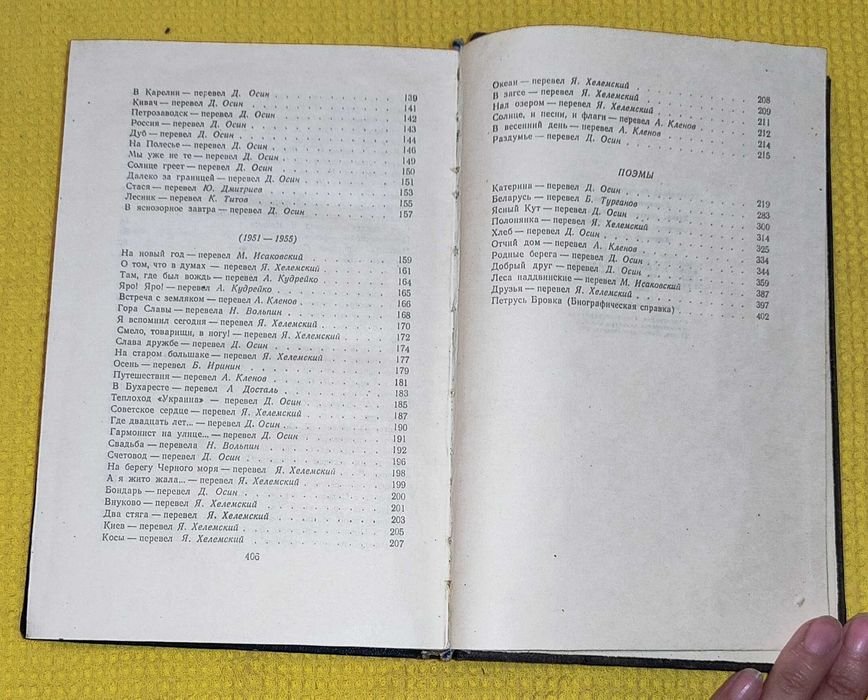 В Каролин — перевел Д. Осин . . . 139
Кивач — перевел Д. Осин . . . 141
Петрозаводск — перевел Д. Осин . . . 142
Россия — перевел Д. Осин . . . 143
Дуб — перевел Д. Осин . . . 144
На Полесье — перевел Д. Осин . . . 146
Мы уже не те — перевел Д. Осин . . . 149
Солнце греет — перевел Д. Осин . . . 150
Далеко за границей — перевел Д. Осин . . . 151
Стася — перевел Ю. Дмитриев . . . 153
Лесник — перевел К. Титов . . . 155
В яснозорное завтра — перевел Д. Осин . . . 157
(1951 — 1955)
На новый год — перевел М. Исаковский . . . 159
О том, что в думах — перевел Я. Хелемский . . . 161
Там, где был вождь — перевел А. Кудрейко . . . 164
Яро! Яро! — перевел А. Кудрейко . . . 165
Встреча с земляком — перевел А. Кленов . . . 166
Гора Славы — перевела Н. Вольпин . . . 168
Я вспомнил сегодня — перевел Я. Хелемский . . . 170
Смело, товарищи, в ногу! — перевел Я. Хелемский . . . 172
Слава дружбе — перевел Д. Осин . . . 174
На старом большаке — перевел Я. Хелемский . . . 177
Осень — перевел Б. Иринин . . . 179
Путешествия — перевел А. Кленов . . . 181
В Бухаресте — перевел А Досталь . . . 183
Теплоход «Украина» — перевел Д. Осин . . . 185
Советское сердце — перевел Я. Хелемский . . . 187
Где двадцать лет... — перевел Д. Осин . . . 190
Гармонист на улице... — перевел Д. Осин . . . 191
Свадьба — перевела Н. Вольпин . . . 192
Счетовод — перевел Д. Осин . . . 196
На берегу Черного моря — перевел Я. Хелемский . . . 198
А я жито жала... — перевел Я. Хелемский . . . 199
Бондарь — перевел Д. Осин . . . 200
Внуково — перевел Я. Хелемский . . . 201
Два стяга — перевел Я. Хелемский . . . 203
Киев — перевел Я. Хелемский . . . 205
Косы — перевел Я. Хелемский . . . 207
406
Океан — перевел Я. Хелемский . . . 208
В загсе — перевел Я. Хелемский . . . 209
Над озером — перевел Я. Хелемский . . . 211
Солнце, и песни, и флаги — перевел А. Кленов . . . 212
В весенний день — перевел А. Кленов . . . 214
Раздумье — перевел Д. Осин . . . 215
ПОЭМЫ
Катерина — перевел Д. Осин . . . 219
Беларусь — перевел Б. Турганов . . . 283
Ясный Кут — перевел Д. Осин . . . 300
Полонянка — перевел Я. Хелемский . . . 314
Хлеб — перевел Д. Осин . . . 325
Отчий дом — перевел А. Кленов . . . 334
Родные берега — перевел Д. Осин . . . 344
Добрый друг — перевел Д. Осин . . . 359
Леса наддвинские — перевел М. Исаковский . . . 387
Друзья — перевел Я. Хелемский . . . 397
Петрусь Бровка (Биографическая справка) . . . 402